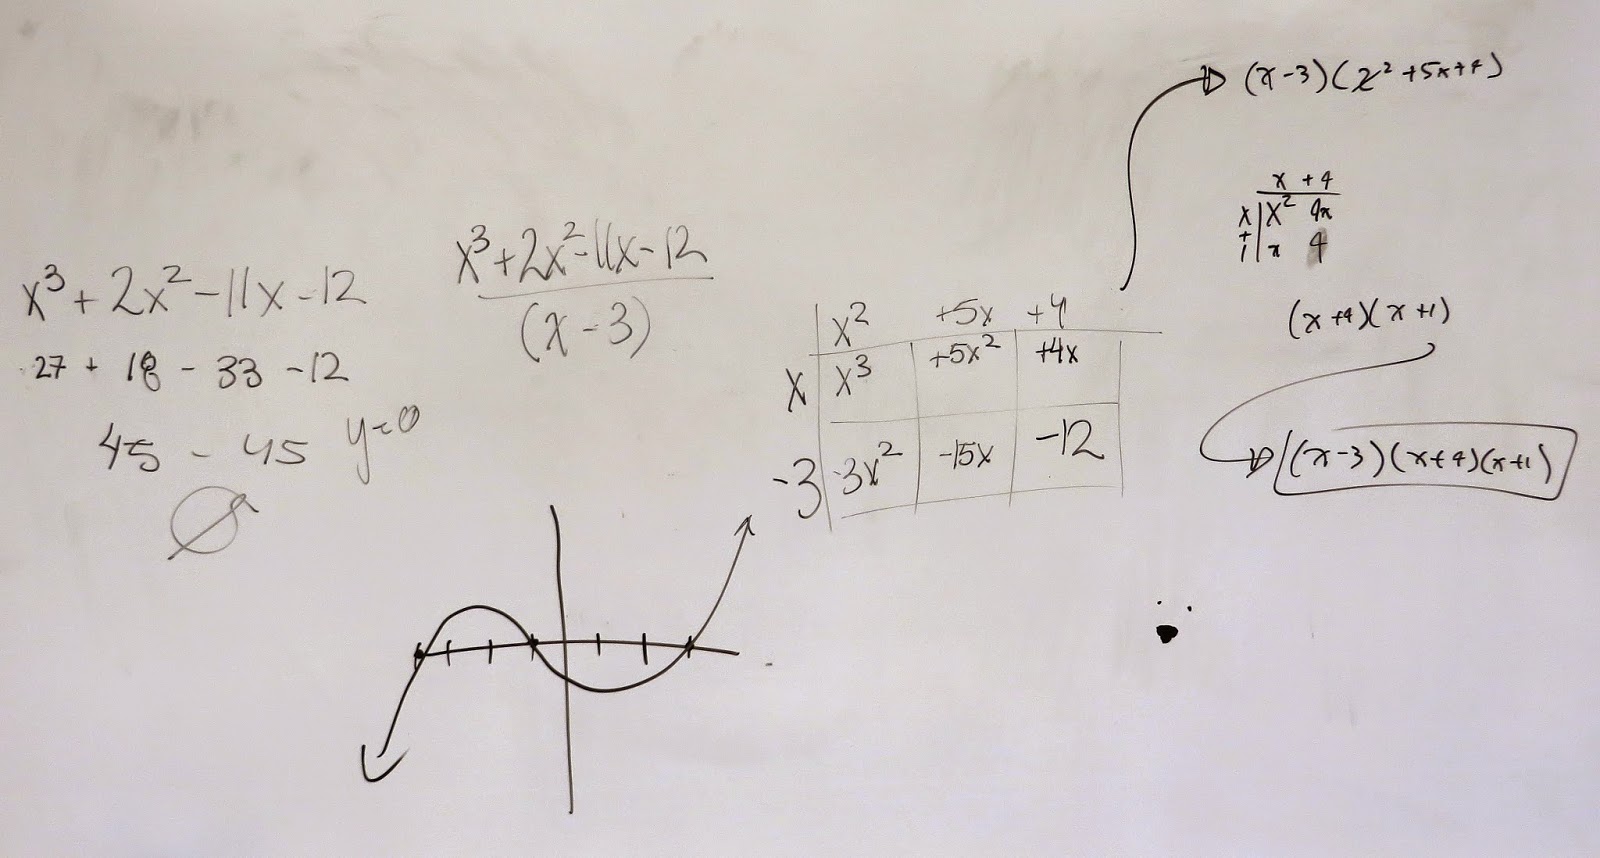 x³ + 2x² - 11x - 12
27 + 18 - 33 - 12
45 - 45 y=0
x³ + 2x² - 11x - 12
(x - 3)
x² +5x +4
x x³ +5x² +4x
-3 -3x² -15x -12
(x-3)(x²+5x+4)
x +4
x x² 4x
+1 x 4
(x+4)(x+1)
(x-3)(x+4)(x+1)